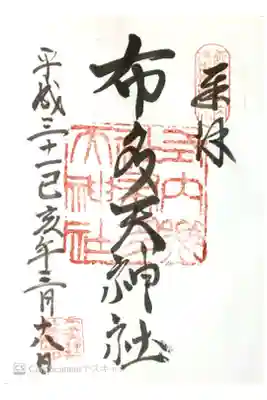 奉拝
布多天神社
平成三十一己亥年三月六日
天神社
CS CamScannerでスキャン